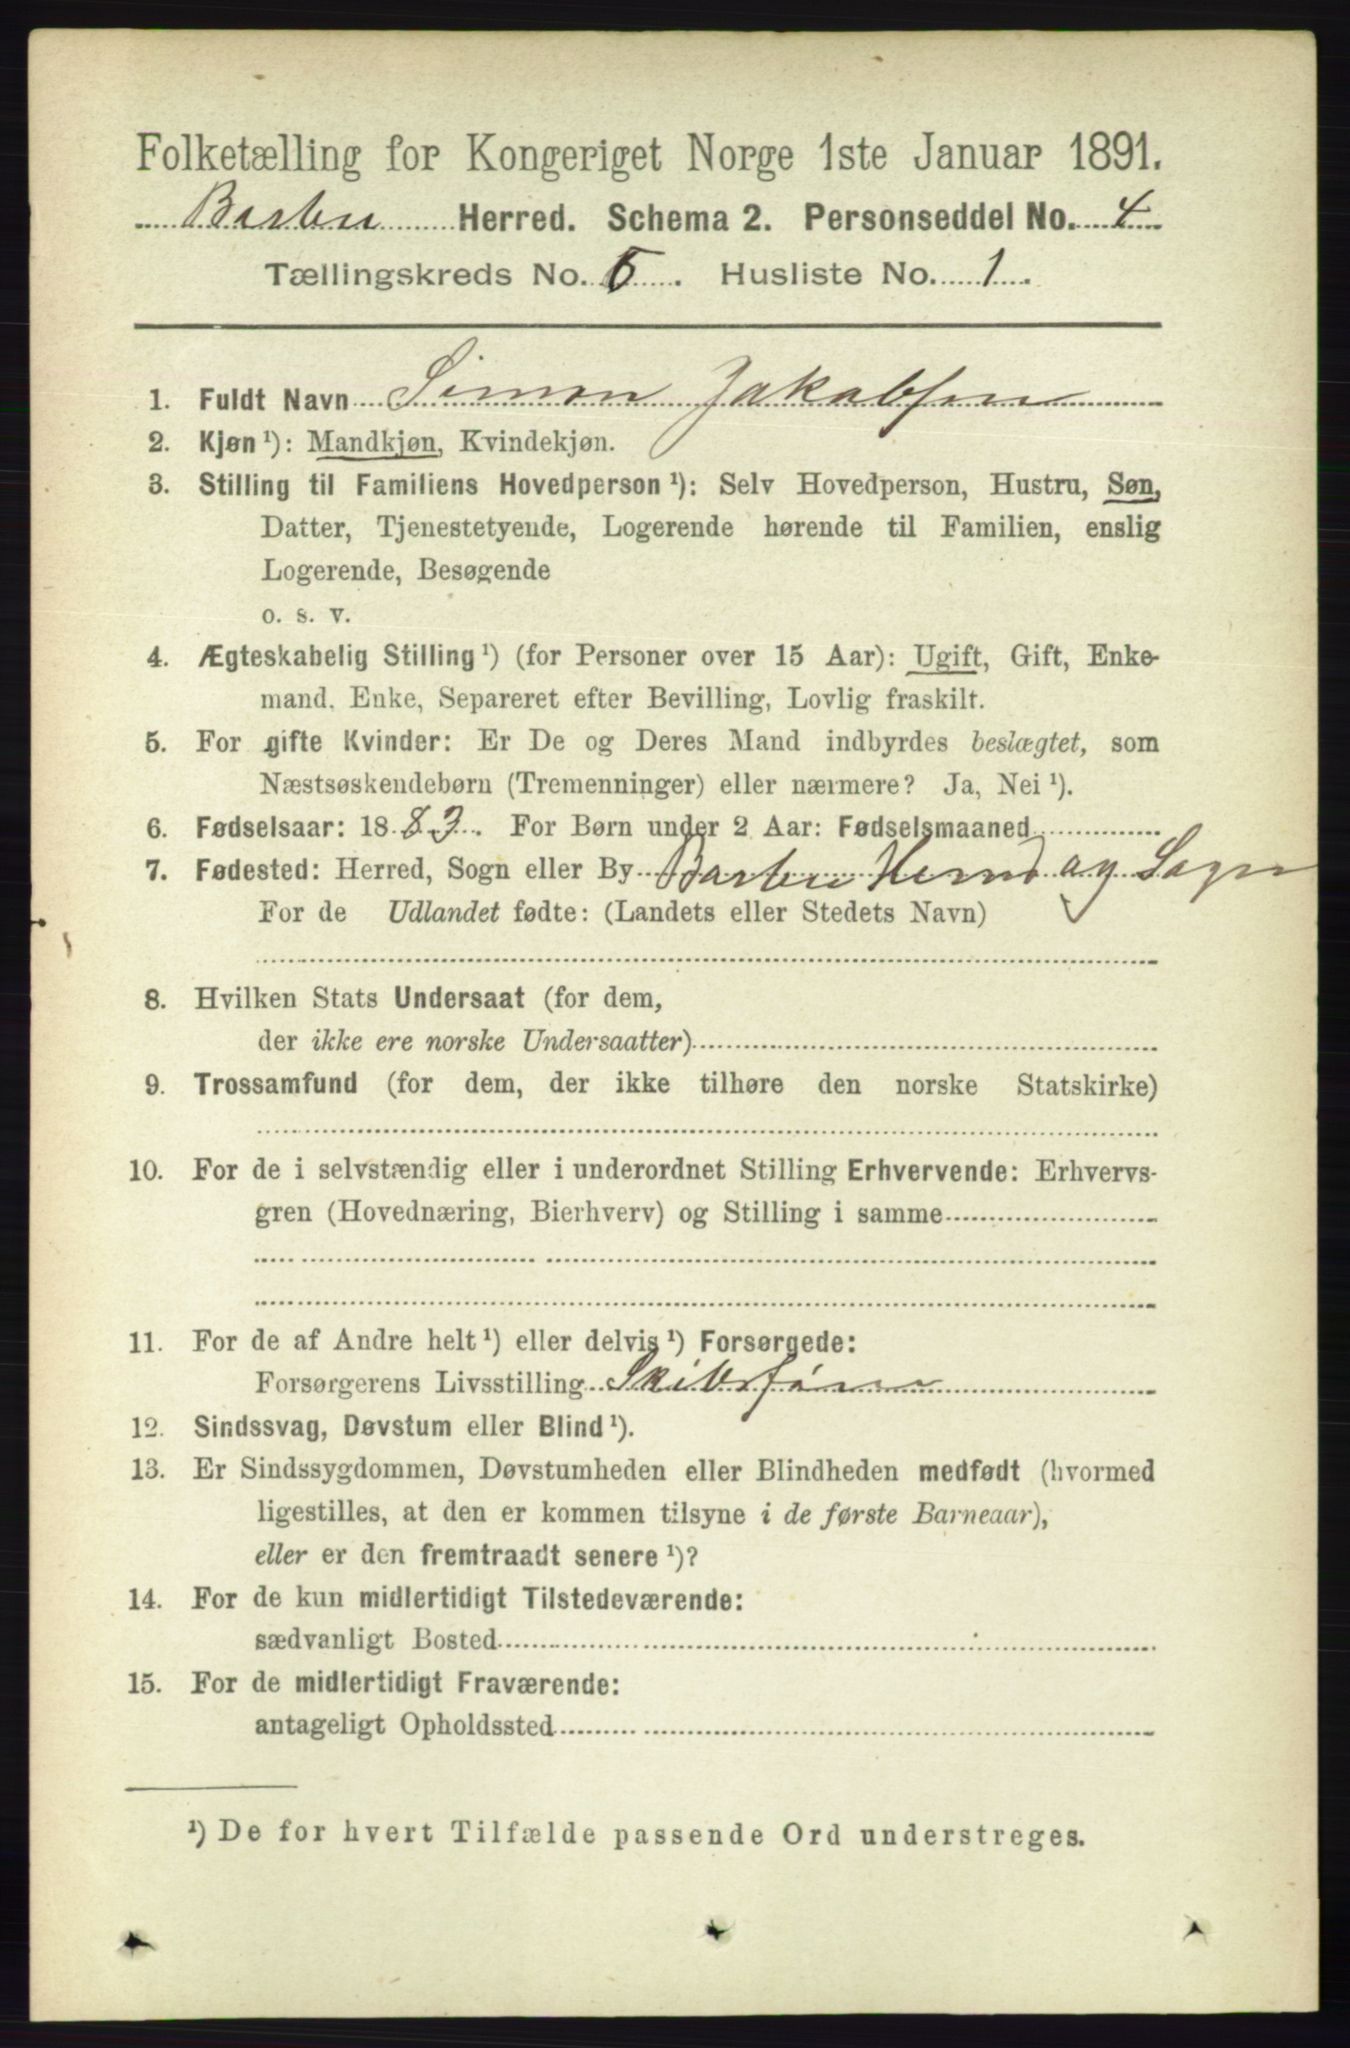 Folketælling for Kongeriget Norge 1ste Januar 1891.
Barbu Herred. Schema 2. Personseddel No. 4
Tællingskreds No. 5. Husliste No. 1.
1. Fuldt Navn Simon Jakobsen
2. Kjøn ¹): Mandkjøn, Kvindekjøn.
3. Stilling til Familiens Hovedperson ¹): Selv Hovedperson, Hustru, Søn,
Datter, Tjenestetyende, Logerende hørende til Familien, enslig
Logerende, Besøgende
o. s. v.
4. Ægteskabelig Stilling ¹) (for Personer over 15 Aar): Ugift, Gift, Enke-
mand, Enke, Separeret efter Bevilling, Lovlig fraskilt.
5. For gifte Kvinder: Er De og Deres Mand indbyrdes beslægtet, som
Næstsøskendebørn (Tremenninger) eller nærmere? Ja, Nei ¹).
6. Fødselsaar: 1883. For Børn under 2 Aar: Fødselsmaaned
7. Fødested: Herred, Sogn eller By Barbu Herred og Sogn
For de Udlandet fødte: (Landets eller Stedets Navn)
8. Hvilken Stats Undersaat (for dem,
der ikke ere norske Undersaatter)
9. Trossamfund (for dem, der ikke tilhøre den norske Statskirke)
10. For de i selvstændig eller i underordnet Stilling Erhvervende: Erhvervs-
gren (Hovednæring, Bierhverv) og Stilling i samme
11. For de af Andre helt ¹) eller delvis ¹) Forsørgede:
Forsørgerens Livsstilling Skibsfører
12. Sindssvag, Døvstum eller Blind ¹).
13. Er Sindssygdommen, Døvstumheden eller Blindheden medfødt (hvormed
ligestilles, at den er kommen tilsyne i de første Barneaar),
eller er den fremtraadt senere ¹)?
14. For de kun midlertidigt Tilstedeværende:
sædvanligt Bosted
15. For de midlertidigt Fraværende:
antageligt Opholdssted
¹) De for hvert Tilfælde passende Ord understreges.